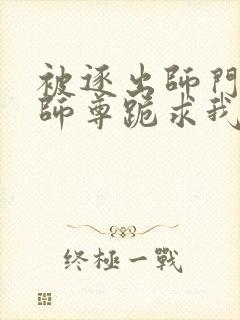 被逐出師門
師尊跪求我
终極一戰